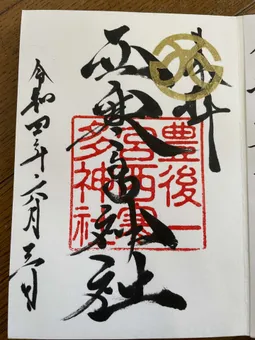 奉拝
西寒多神社
令和四年六月三日
豊後一
宮西寒
多神社